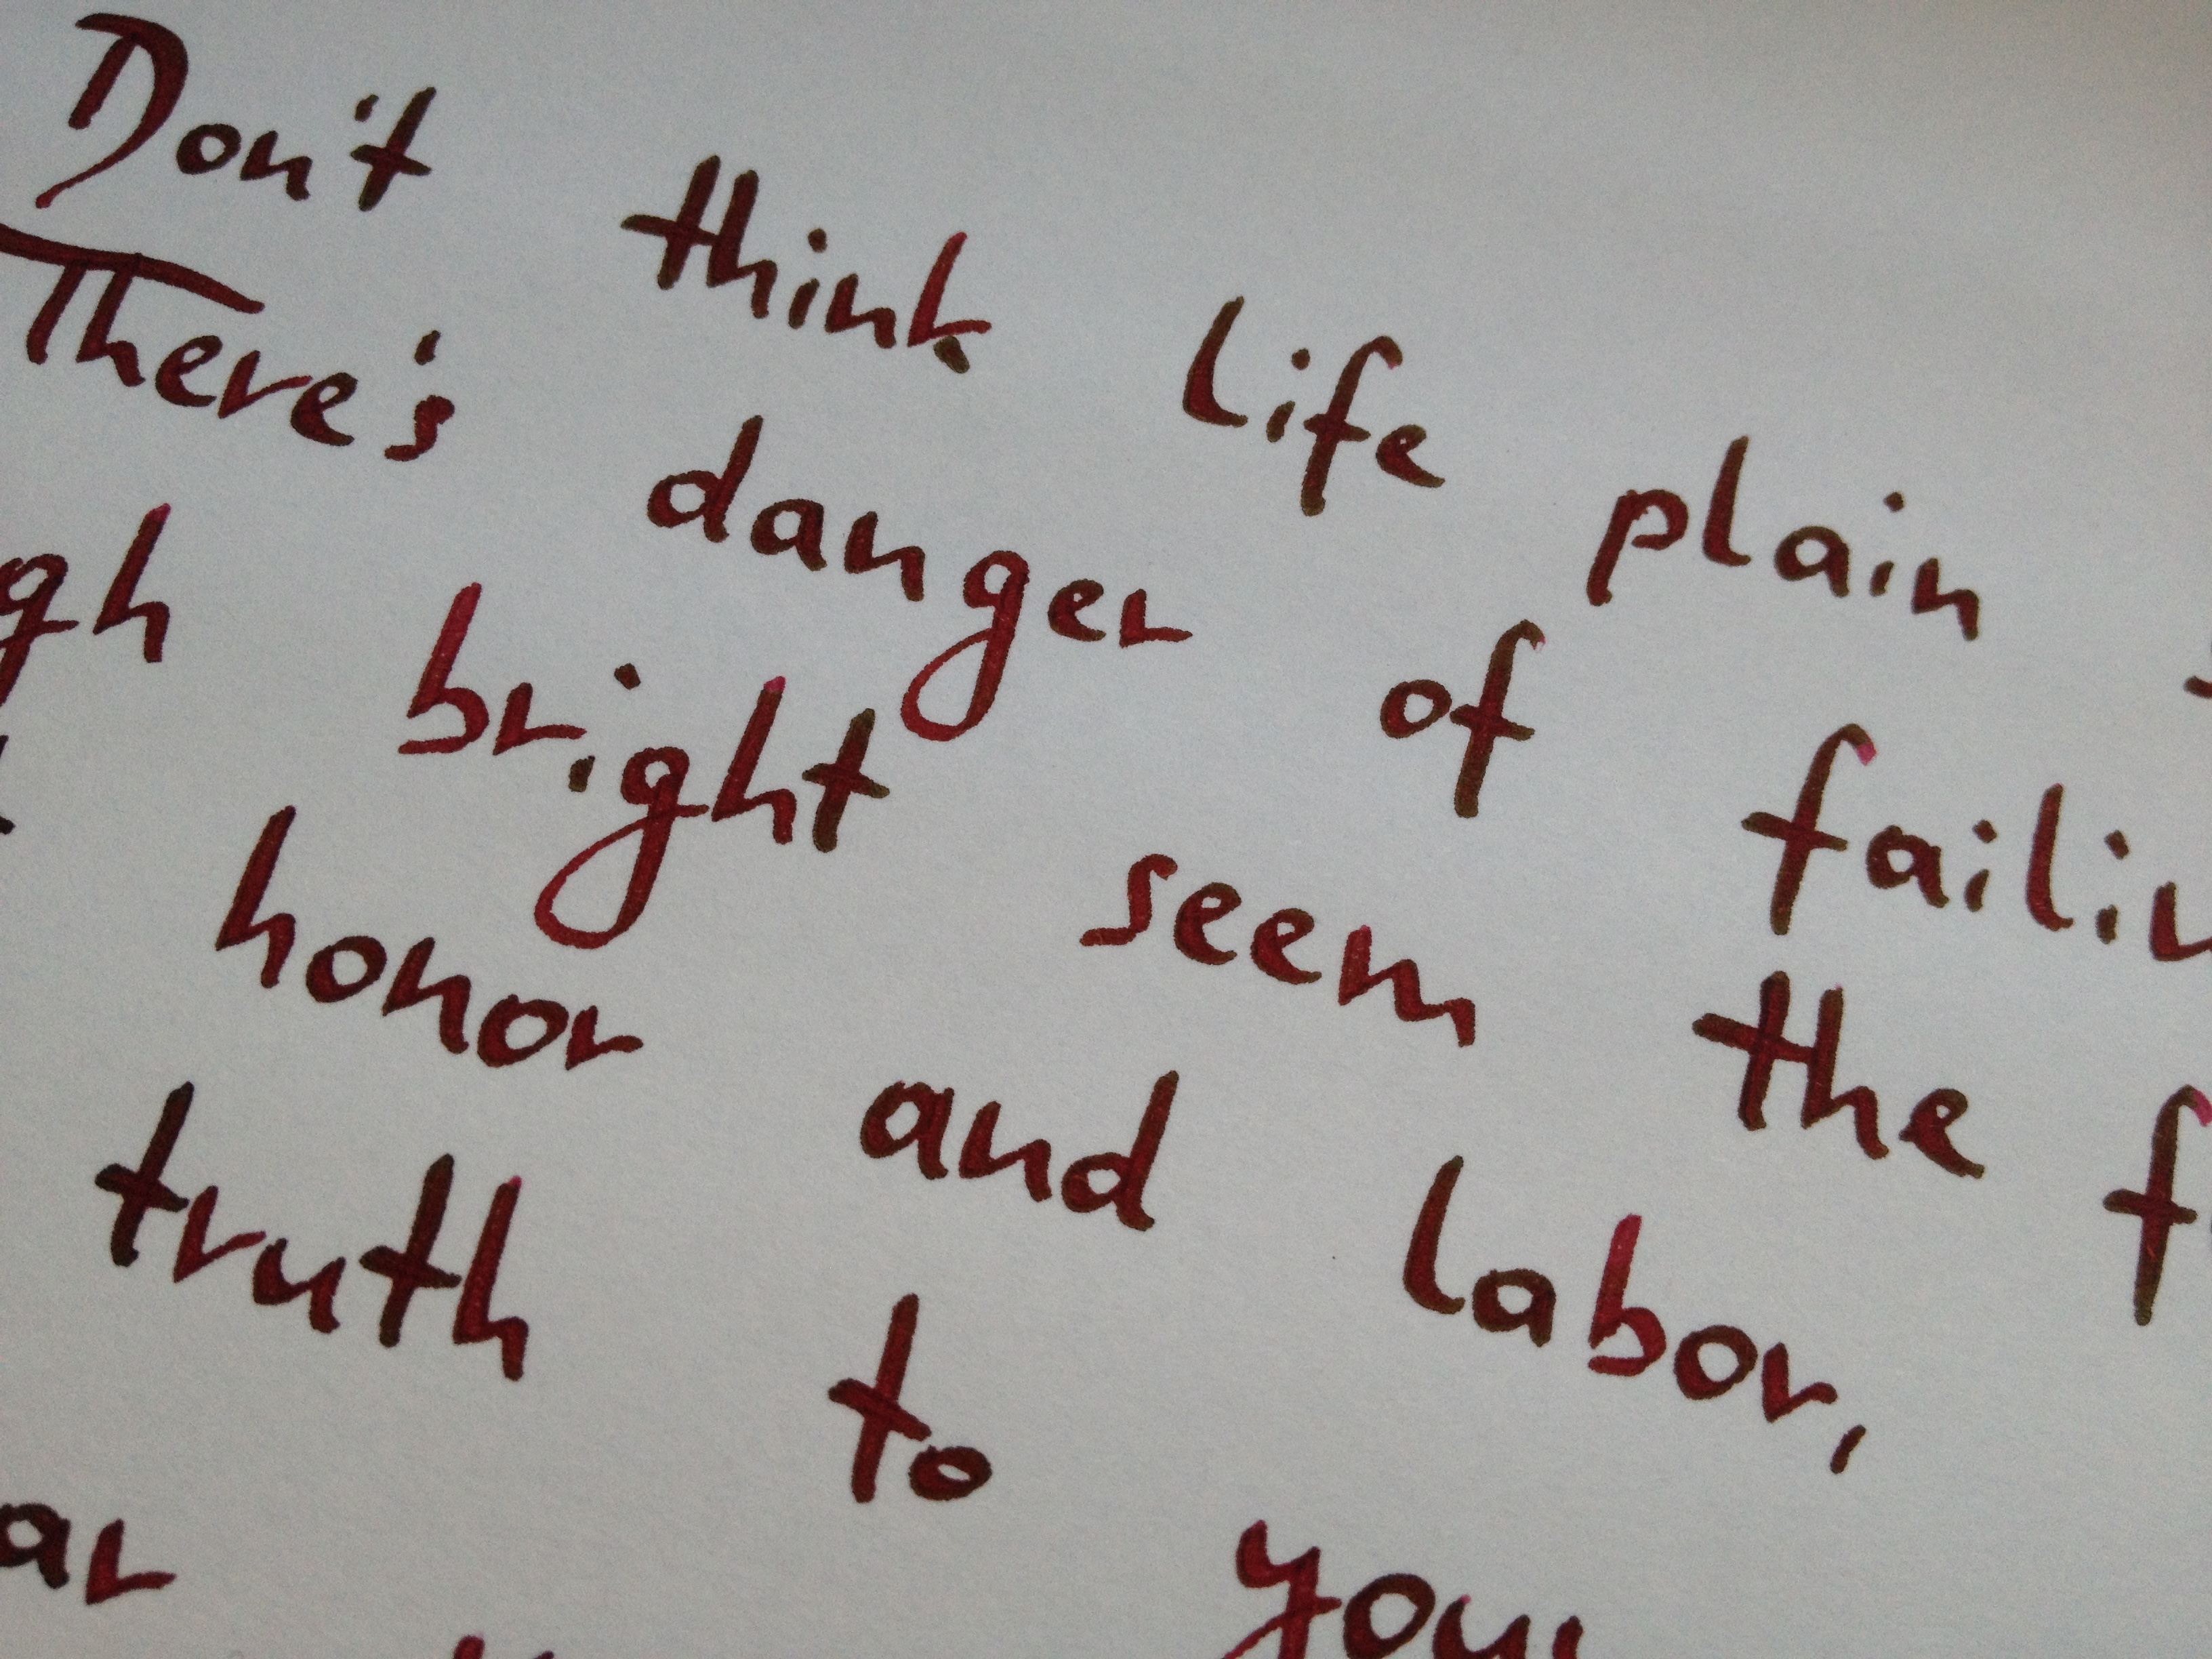 Don't think life plain
There's danger of failin
gh bright seem the f
honor and labor,
truth to your
ar